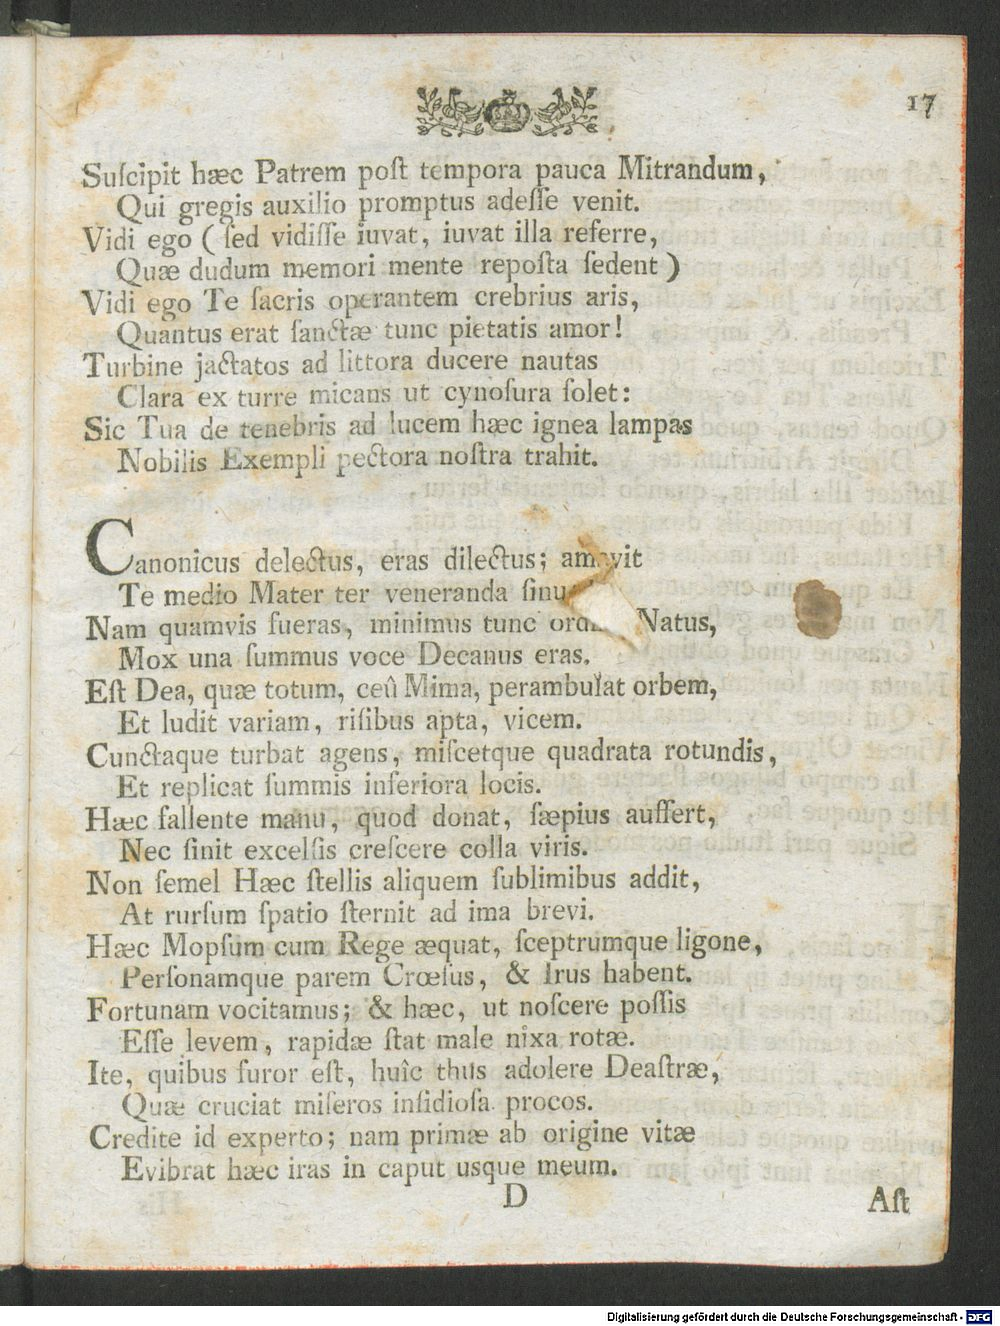 17
Suſcipit hæc Patrem poſt tempora pauca Mitrandum,
Qui gregis auxilio promptus adeſſe venit.
Vidi ego ( ſed vidiſſe iuvat, iuvat illa referre,
Quæ dudum memori mente repoſta ſedent )
Vidi ego Te ſacris operantem crebrius aris,
Quantus erat ſanctæ tunc pietatis amor!
Turbine jactatos ad littora ducere nautas
Clara ex turre micans ut cynoſura ſolet:
Sic Tua de tenebris ad lucem hæc ignea lampas
Nobilis Exempli pectora noſtra trahit.
Canonicus delectus, eras dilectus; amavit
Te medio Mater ter veneranda
Nam quamvis fueras, minimus tunc Natus,
Mox una ſummus voce Decanus eras.
Eſt Dea, quæ totum, ceû Mima, perambulat orbem,
Et ludit variam, riſibus apta, vicem.
Cunctaque turbat agens, miſcetque quadrata rotundis,
Et replicat ſummis inferiora locis.
Hæc fallente manu, quod donat, ſæpius auffert,
Nec ſinit excelſis creſcere colla viris.
Non ſemel Hæc ſtellis aliquem ſublimibus addit,
At rurſum ſpatio ſternit ad ima brevi.
Hæc Mopſum cum Rege æquat, ſceptrumque ligone,
Perſonamque parem Crœſus, & Irus habent.
Fortunam vocitamus; & hæc, ut noſcere poſſis
Eſſe levem, rapidæ ſtat male nixa rotæ.
Ite, quibus furor eſt, huîc thus adolere Deaſtræ,
Quæ cruciat miſeros inſidioſa procos.
Credite id experto; nam primæ ab origine vitæ
Evibrat hæc iras in caput usque meum.
D
Aſt
Digitalisierung gefördert durch die Deutsche Forschungsgemeinschaft - DFG